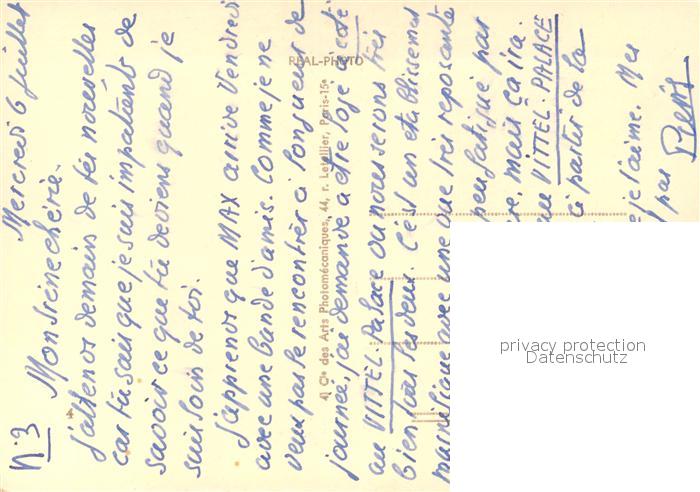 N: 3 Mercredi 6 juillet
Mon Irène chérie.
J'attends demain de tes nouvelles
car tu sais que je suis impatient de
savoir ce que tu deviens quand je
suis loin de toi.
J'apprends que MAX arrive Vendredi
avec une bande d'amis. Comme je ne
veux pas le rencontrer à longueur de
journée, j'ai demandé à être logé à côté
au VITTEL-Palace où nous serons très
bien tous les deux. C'est un etablissement
magnifique avec une vue très reposante
peu fatigué par
mais ça ira.
au VITTEL-PALACE
à partir de la
je t'aime. Mes
par
REAL-PHOTO
4) Cie des Arts Photomécaniques, 44, r. Letellier, Paris-15e
privacy protection
Datenschutz